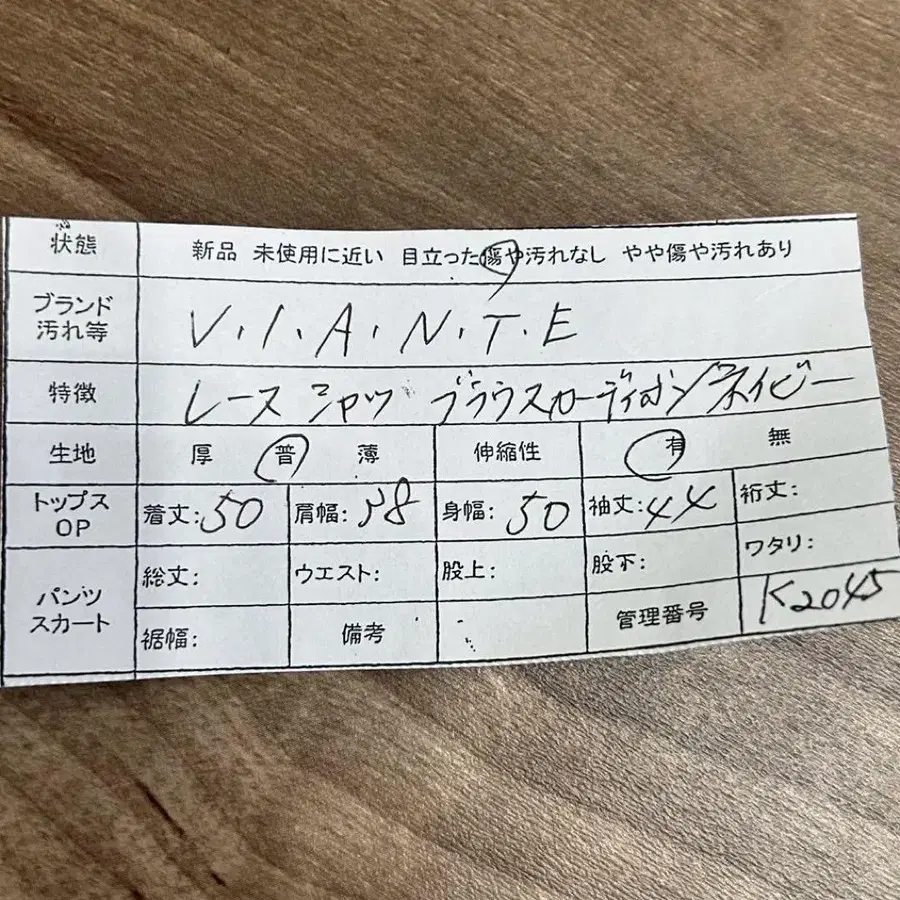 状態 新品 未使用に近い 目立った傷や汚れなし やや傷や汚れあり
ブランド
汚れ等
V.I.A.N.T.E
特徴 レース シャツ ブラウスカーディガン ネイビー
生地 厚 普 薄 伸縮性 有 無
トップス
OP
着丈:50 肩幅:38 身幅:50 袖丈:44 裄丈:
パンツ
スカート
総丈: ウエスト: 股上: 股下: ワタリ:
裾幅: 備考 管理番号 K2045